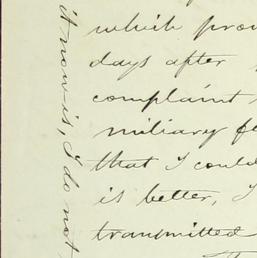 which prov
days after
complaint
miliary fe
that I could
is better, I
transmitted
it now is, I do not